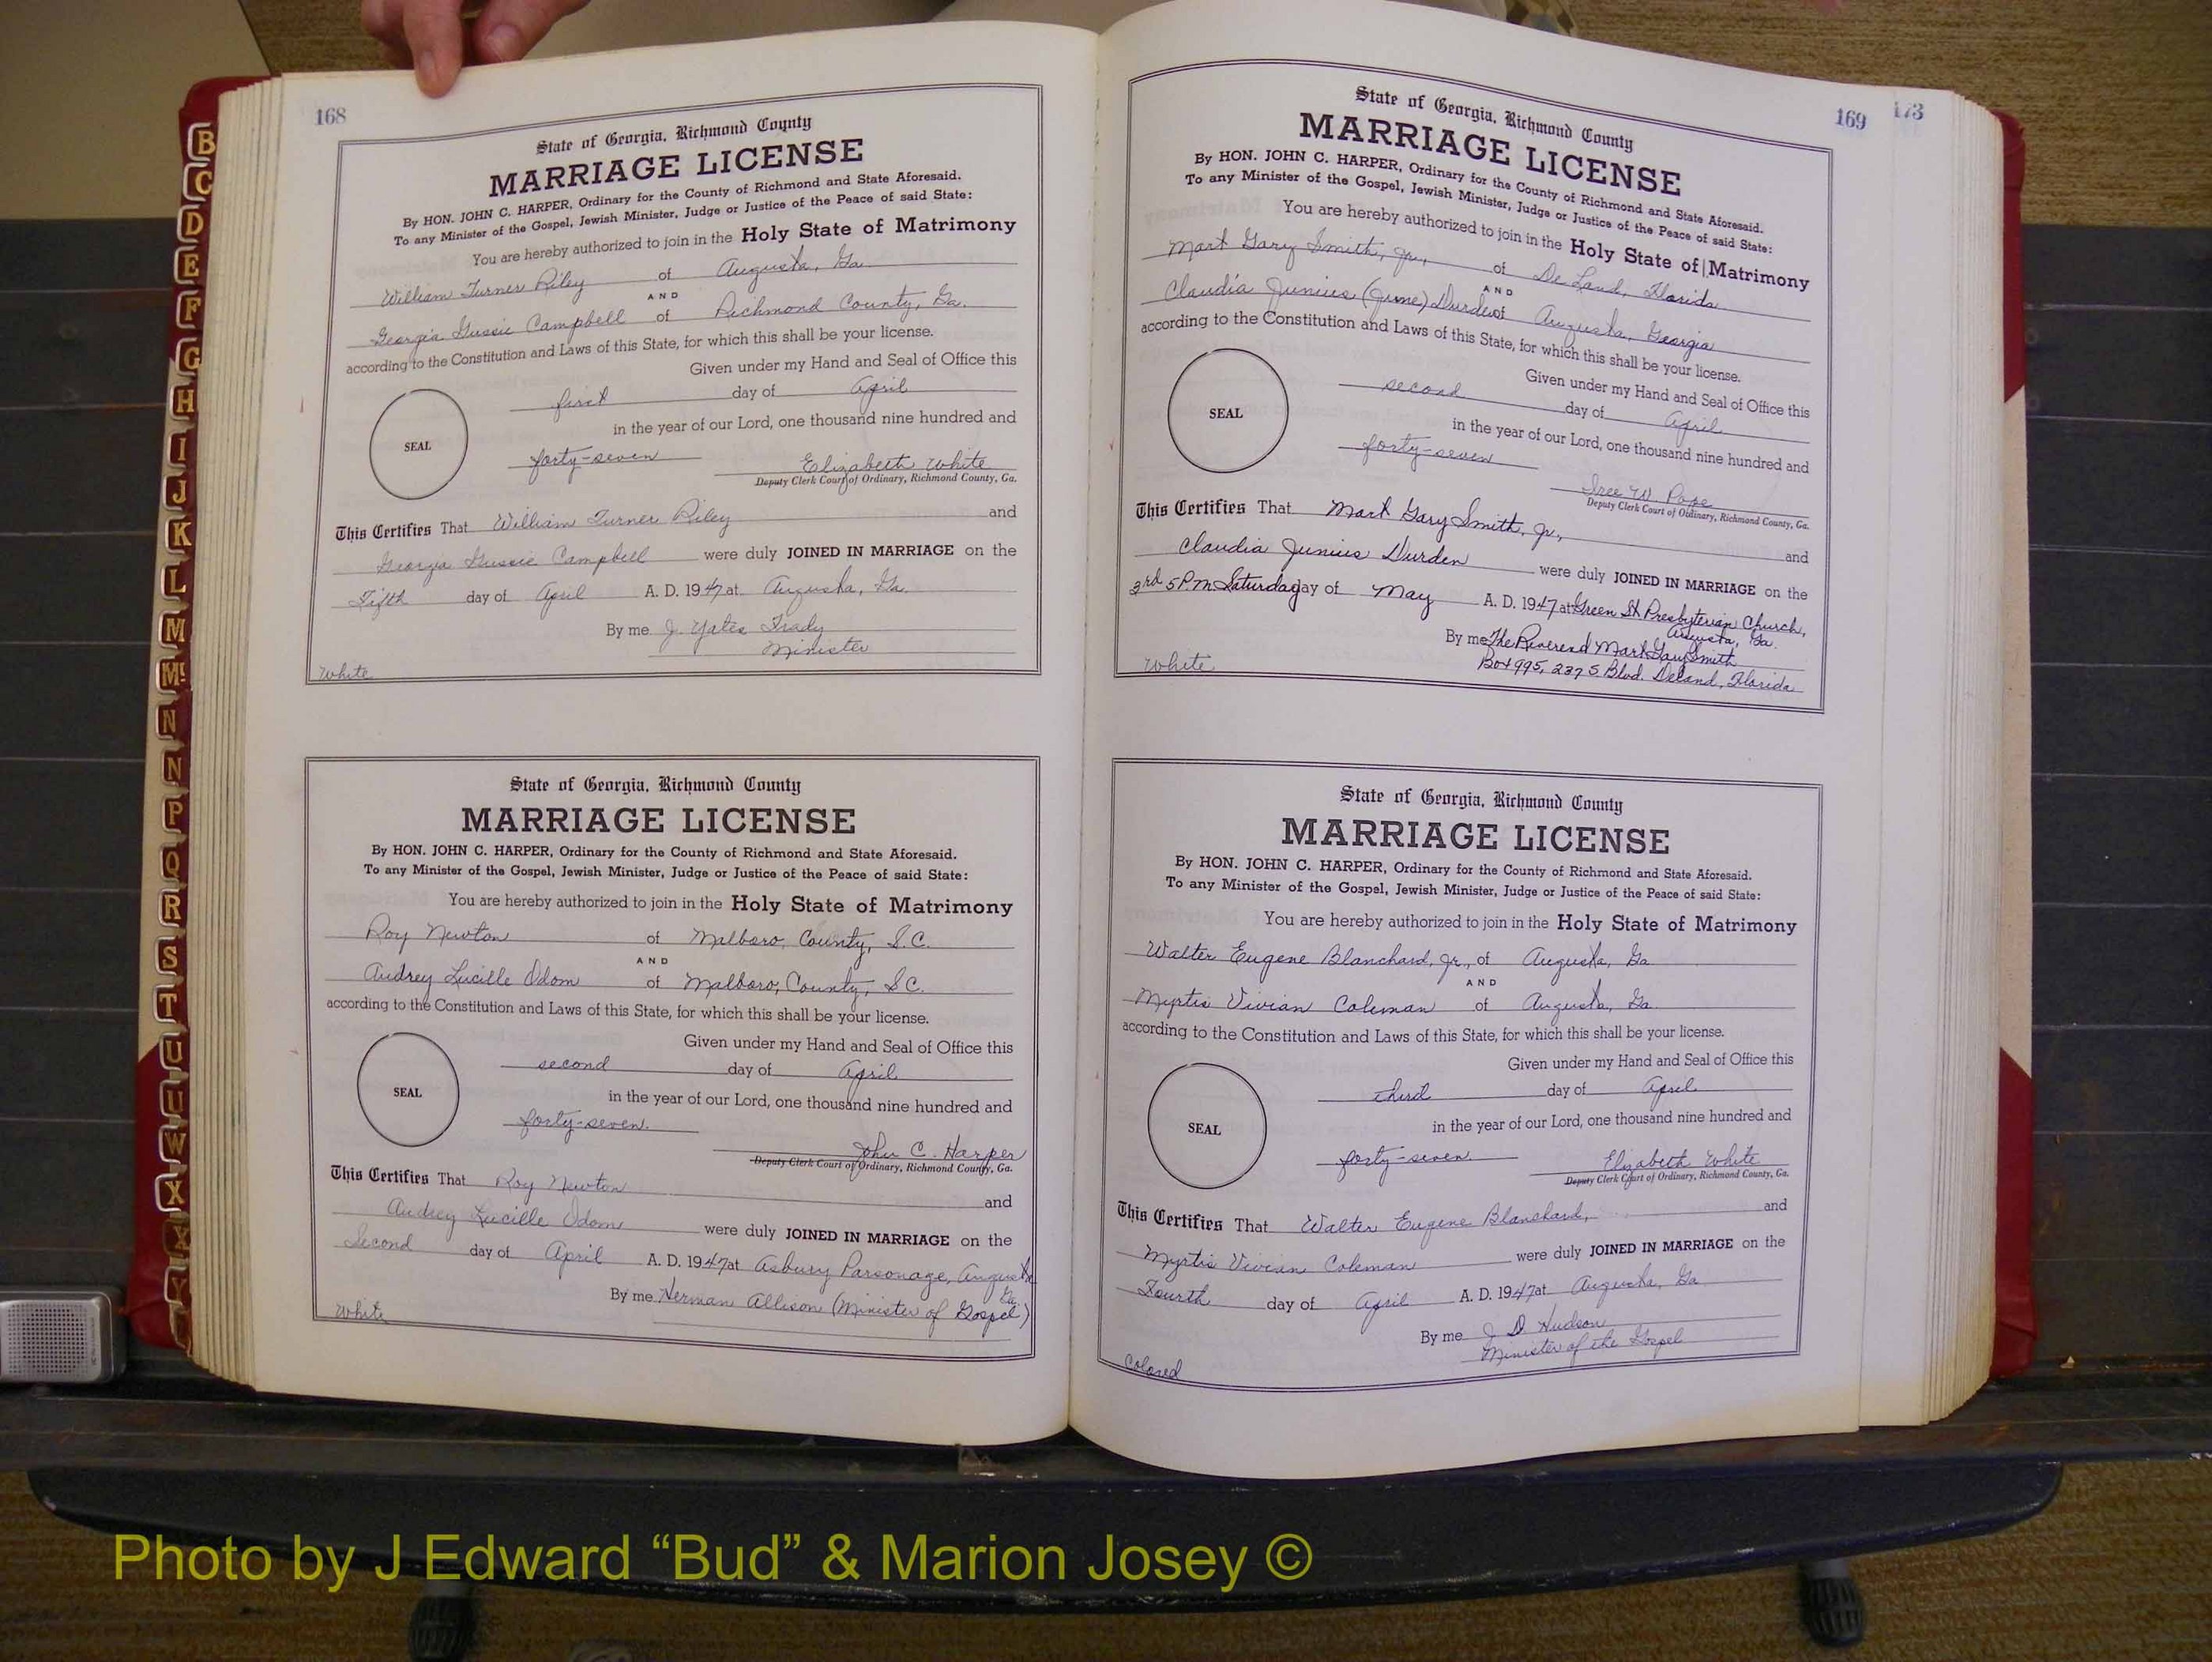 168
State of Georgia, Richmond County
MARRIAGE LICENSE
By HON. JOHN C. HARPER, Ordinary for the County of Richmond and State Aforesaid.
To any Minister of the Gospel, Jewish Minister, Judge or Justice of the Peace of said State:
You are hereby authorized to join in the Holy State of Matrimony
William Turner Riley of Augusta, Ga.
AND
Georgia Gussie Campbell of Richmond County, Ga.
according to the Constitution and Laws of this State, for which this shall be your license.
Given under my Hand and Seal of Office this
first day of April
in the year of our Lord, one thousand nine hundred and
SEAL
forty-seven
Elizabeth White
Deputy Clerk Court of Ordinary, Richmond County, Ga.
This Certifies That William Turner Riley and
Georgia Gussie Campbell were duly JOINED IN MARRIAGE on the
Fifth day of April A. D. 1947 at Augusta, Ga.
By me J. Yates
Minister
White
State of Georgia, Richmond County
MARRIAGE LICENSE
By HON. JOHN C. HARPER, Ordinary for the County of Richmond and State Aforesaid.
To any Minister of the Gospel, Jewish Minister, Judge or Justice of the Peace of said State:
You are hereby authorized to join in the Holy State of Matrimony
Roy Newton of Malboro, County, S.C.
AND
Audrey Lucille Odom of Malboro, County, S.C.
according to the Constitution and Laws of this State, for which this shall be your license.
Given under my Hand and Seal of Office this
second day of April
in the year of our Lord, one thousand nine hundred and
SEAL
forty-seven.
John C. Harper
Deputy Clerk Court of Ordinary, Richmond County, Ga.
This Certifies That Roy Newton and
Audrey Lucille Odom were duly JOINED IN MARRIAGE on the
Second day of April A. D. 1947 at Asbury Parsonage, Augusta
Ga.
By me Herman Allison (Minister of Gospel)
White
169
173
State of Georgia, Richmond County
MARRIAGE LICENSE
By HON. JOHN C. HARPER, Ordinary for the County of Richmond and State Aforesaid.
To any Minister of the Gospel, Jewish Minister, Judge or Justice of the Peace of said State:
You are hereby authorized to join in the Holy State of Matrimony
Mark Gary Smith, Jr., of De Land, Florida
AND
Claudia Junius (June) Durden of Augusta, Georgia
according to the Constitution and Laws of this State, for which this shall be your license.
Given under my Hand and Seal of Office this
second day of April
in the year of our Lord, one thousand nine hundred and
SEAL
forty-seven
Iree W. Pope
Deputy Clerk Court of Ordinary, Richmond County, Ga.
This Certifies That Mark Gary Smith, Jr., and
Claudia Junius Durden were duly JOINED IN MARRIAGE on the
3rd 5 P.M. Saturday day of May A. D. 1947 at Green St Presbyterian Church,
Augusta, Ga.
By me The Reverend Mark Gary Smith
Box 995, 237 S. Blvd. Deland, Florida
White
State of Georgia, Richmond County
MARRIAGE LICENSE
By HON. JOHN C. HARPER, Ordinary for the County of Richmond and State Aforesaid.
To any Minister of the Gospel, Jewish Minister, Judge or Justice of the Peace of said State:
You are hereby authorized to join in the Holy State of Matrimony
Walter Eugene Blanchard, Jr., of Augusta, Ga
AND
Myrtis Vivian Coleman of Augusta, Ga.
according to the Constitution and Laws of this State, for which this shall be your license.
Given under my Hand and Seal of Office this
third day of April
in the year of our Lord, one thousand nine hundred and
SEAL
forty-seven
Elizabeth White
Deputy Clerk Court of Ordinary, Richmond County, Ga.
This Certifies That Walter Eugene Blanchard, and
Myrtis Vivian Coleman were duly JOINED IN MARRIAGE on the
Fourth day of April A. D. 1947 at Augusta, Ga
By me J D Hudson
Minister of the Gospel
Colored
B
C
D
E
F
G
H
I
J
K
L
M
Mc
N
N
P
Q
R
S
T
U
U
W
X
X
Y
Photo by J Edward “Bud” & Marion Josey ©